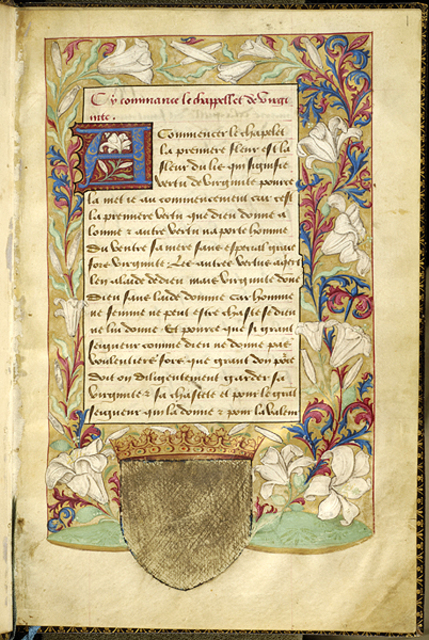 Cy commance le chappellet de virgi
nite.
A Commencer le chapelet
la premiere fleur est la
fleur du lis qui signifie
vertu de virginite pource
la met ie au commencement car cest
la premiere vertu que dieu donne a
lomme & autre vertu na porte homme
du ventre sa mere sans especial grace
fors virginite. Les autres vertus
len a laide de dieu mais virginite donne
dieu sans laide domme car homme
ne femme ne peut estre chaste se dieu
ne lui donne. Et pource que si grant
seigneur comme dieu ne donne pas
voulentiers fors que grant don
doit on diligentement garder sa
virginite & sa chastete et pour le grant
seigneur qui la donne & pour la valeur